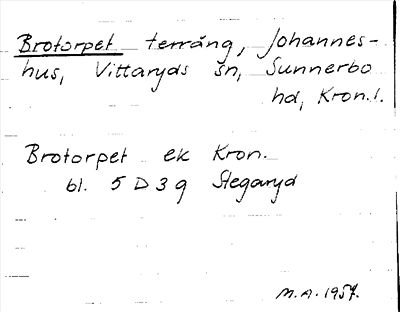 Brotorpet terräng, Johannes-
hus, Vittaryds sn, Sunnerbo
hd, Kron. l.
Brotorpet ek Kron.
bl. 5 D 3 g Stegaryd
M.A. 1957.